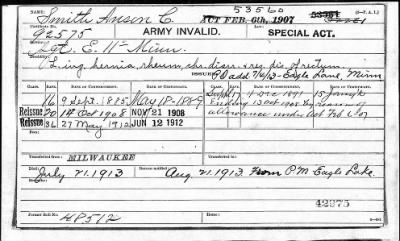 Smith Anson C. 53560
ACT FEB. 6th, 1907
92575 ARMY INVALID. SPECIAL ACT.
Sgt. E. 11" Minn.
L. ing. hernia, rheum, chr. diarr. & res. dis. of rectum.
ISSUES
PO add 7/6/13 - Eagle Lake, Minn
CLASS. RATE. DATE OF COMMENCEMENT. DATE OF CERTIFICATE.
16 9 Sept. 1885 May 18-1889
Reissue 20 1st Oct 1908 NOV 21 1908
Reissue 36 27 May 1912 JUN 12 1912
4 Dec 1891 15
ending 13 Oct 1908 by reason of
allowance under act Feb 6 07
Transferred from MILWAUKEE
Died July 21. 1913 Aug 21. 1913 From P.M. Eagle Lake.
42375
Former Roll No. 48512